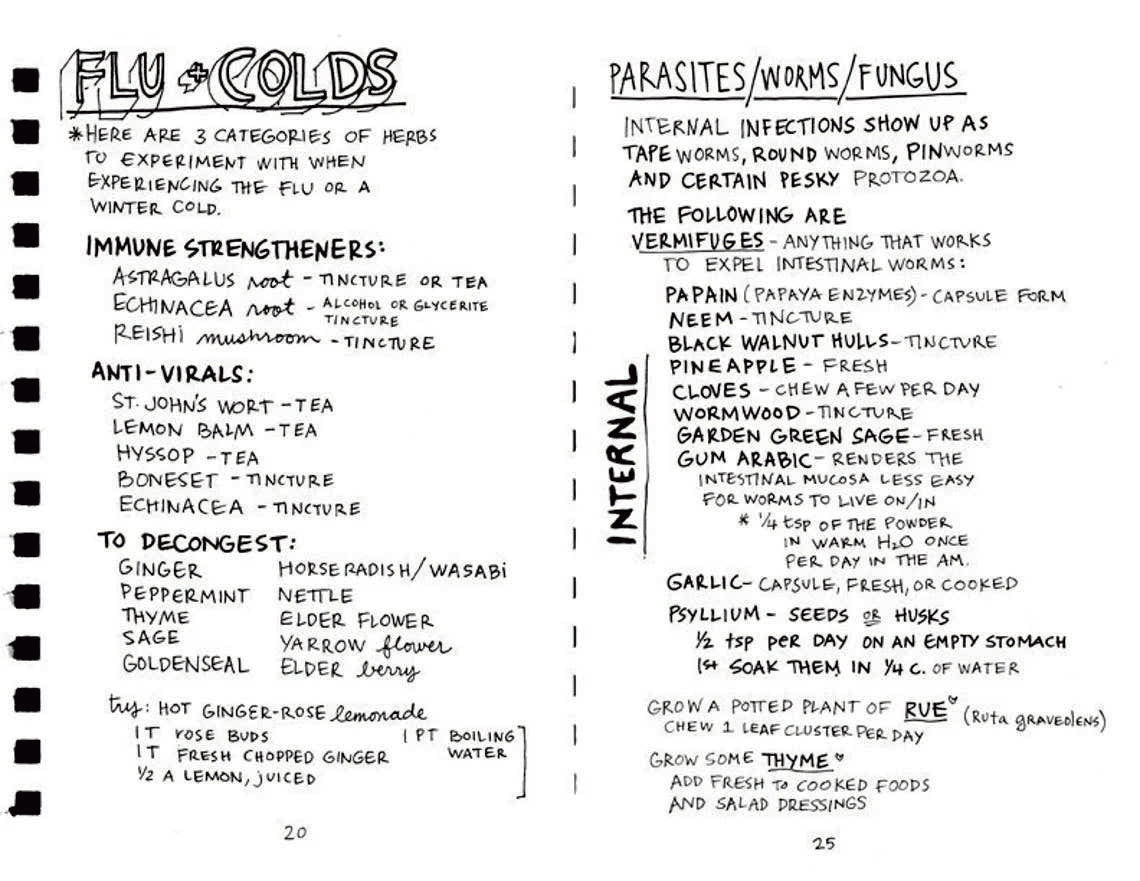 FLU + COLDS
*HERE ARE 3 CATEGORIES OF HERBS
TO EXPERIMENT WITH WHEN
EXPERIENCING THE FLU OR A
WINTER COLD.
IMMUNE STRENGTHENERS:
ASTRAGALUS root - TINCTURE OR TEA
ECHINACEA root - ALCOHOL OR GLYCERITE
TINCTURE
REISHI mushroom - TINCTURE
ANTI-VIRALS:
ST. JOHN'S WORT - TEA
LEMON BALM - TEA
HYSSOP - TEA
BONESET - TINCTURE
ECHINACEA - TINCTURE
TO DECONGEST:
GINGER HORSERADISH/WASABI
PEPPERMINT NETTLE
THYME ELDER FLOWER
SAGE YARROW flower
GOLDENSEAL ELDER berry
try: HOT GINGER-ROSE lemonade
1 T ROSE BUDS 1 PT BOILING
1 T FRESH CHOPPED GINGER WATER
½ A LEMON, JUICED
20
PARASITES/WORMS/FUNGUS
INTERNAL INFECTIONS SHOW UP AS
TAPE WORMS, ROUND WORMS, PINWORMS
AND CERTAIN PESKY PROTOZOA.
THE FOLLOWING ARE
VERMIFUGES - ANYTHING THAT WORKS
TO EXPEL INTESTINAL WORMS:
INTERNAL
PAPAIN (PAPAYA ENZYMES) - CAPSULE FORM
NEEM - TINCTURE
BLACK WALNUT HULLS - TINCTURE
PINEAPPLE - FRESH
CLOVES - CHEW A FEW PER DAY
WORMWOOD - TINCTURE
GARDEN GREEN SAGE - FRESH
GUM ARABIC - RENDERS THE
INTESTINAL MUCOSA LESS EASY
FOR WORMS TO LIVE ON/IN
* ¼ tsp OF THE POWDER
IN WARM H₂O ONCE
PER DAY IN THE AM.
GARLIC - CAPSULE, FRESH, OR COOKED
PSYLLIUM - SEEDS OR HUSKS
½ tsp PER DAY ON AN EMPTY STOMACH
1st SOAK THEM IN ¼ C. OF WATER
GROW A POTTED PLANT OF RUE (Ruta graveolens)
CHEW 1 LEAF CLUSTER PER DAY
GROW SOME THYME
ADD FRESH TO COOKED FOODS
AND SALAD DRESSINGS
25